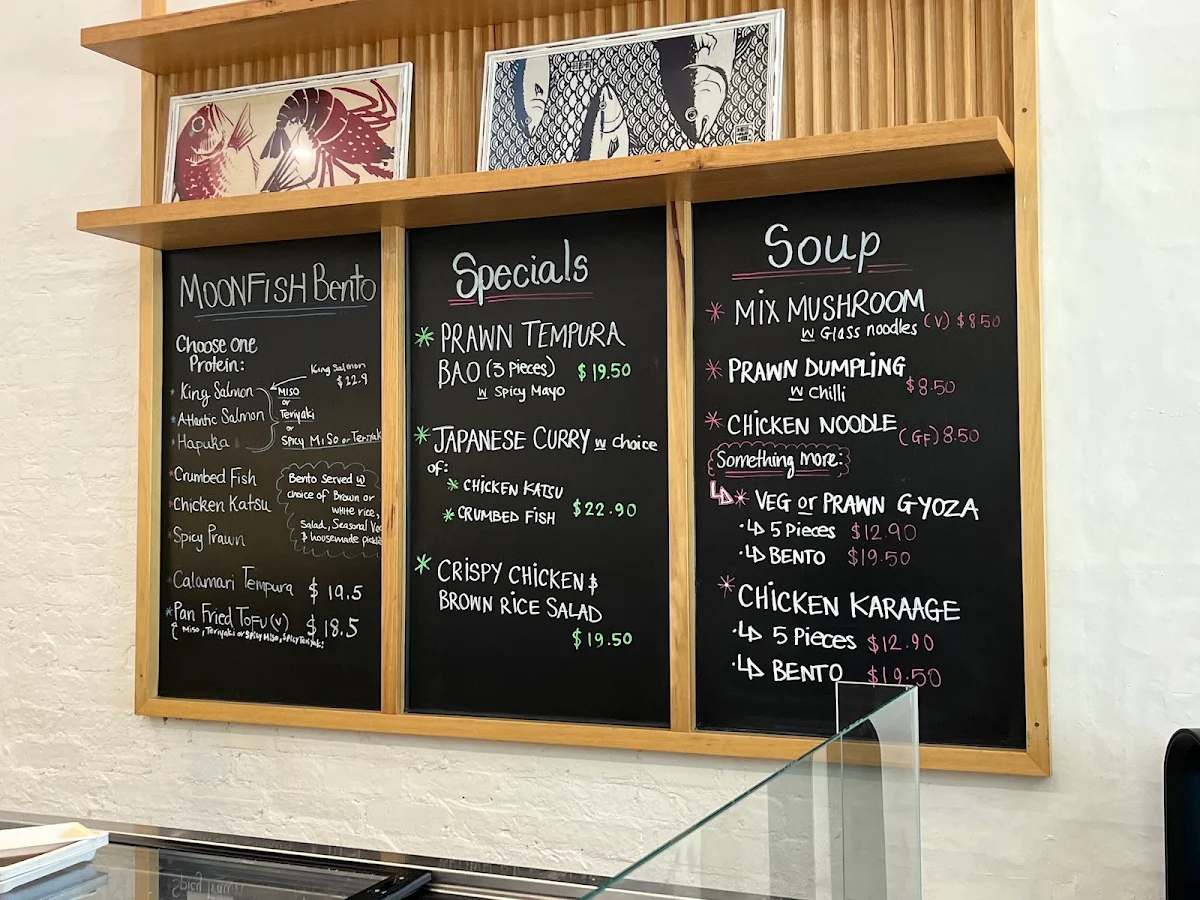 MOONFISH Bento
Choose one
Protein:
King Salmon
Atlantic Salmon
Hapuka
King Salmon
$22.9
MISO
or
Teriyaki
or
SPICY MISO or Teriyak
Crumbed Fish
Chicken Katsu
Spicy Prawn
Bento Served w
choice of Brown or
white rice,
Salad, Seasonal Veg
& housemade pickle
Calamari Tempura $19.5
Pan Fried TOFU (V) $18.5
MISO, Teriyaki or Spicy Miso, Spicy Teriyaki
Specials
* PRAWN TEMPURA
BAO (3 PIECES) $19.50
w Spicy Mayo
* JAPANESE CURRY w choice
of:
* CHICKEN KATSU
* CRUMBED FISH $22.90
* CRISPY CHICKEN &
BROWN RICE SALAD
$19.50
Soup
* MIX MUSHROOM
w Glass noodles (V) $8.50
* PRAWN DUMPLING
w Chilli $8.50
* CHICKEN NOODLE
(GF) 8.50
Something more:
* VEG or PRAWN GYOZA
5 Pieces $12.90
BENTO $19.50
* CHICKEN KARAAGE
5 Pieces $12.90
BENTO $19.50